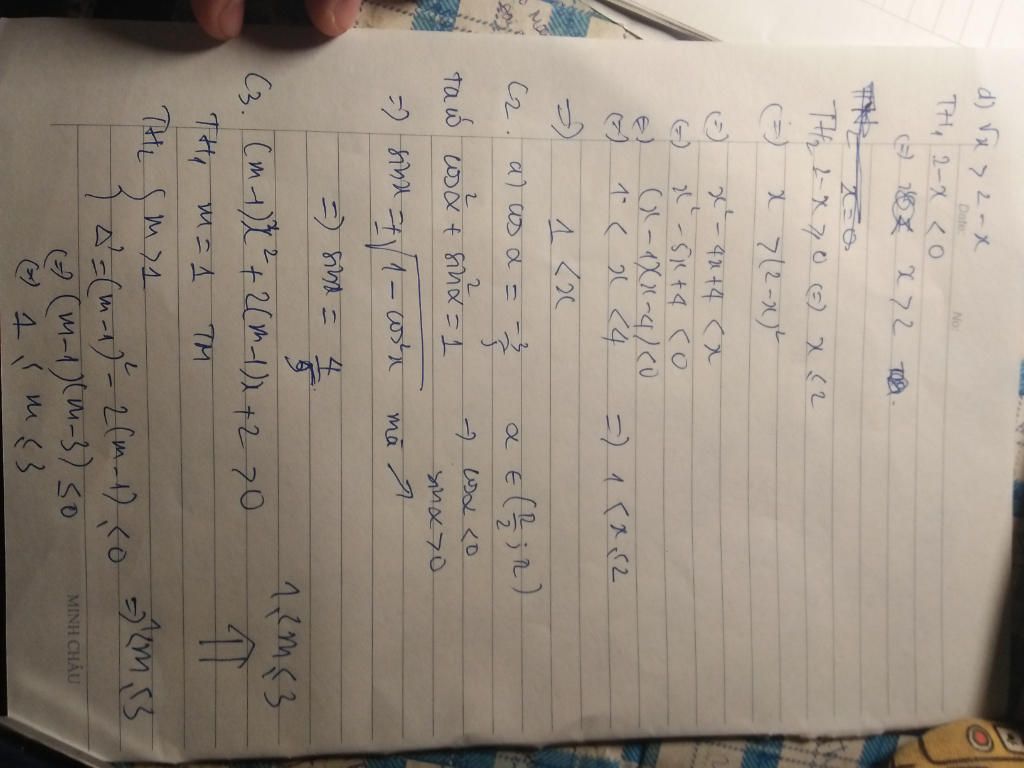 Date: No:
d) √x > 2 - x
TH₁ 2 - x < 0
(=) x > 2
TH₂ x = 0
TH₂ 2 - x ≥ 0 (=) x ≤ 2
(=) x > (2 - x)²
(=) x² - 4x + 4 < x
(=) x² - 5x + 4 < 0
(=) (x - 1)(x - 4) < 0
(=) 1 < x < 4 => 1 < x ≤ 2
=> 1 < x
C2. a) cos α = -3/5 α ∈ (π/2 ; π)
Ta có cos²α + sin²α = 1 → cosα < 0
sinα > 0
=> sinx = ±√(1 - cos²x) mà ↗
=> sinx = 4/5
C3. (m - 1)x² + 2(m - 1)x + 2 > 0
TH₁ m = 1 TM
TH₂ { m > 1
Δ' = (m - 1)² - 2(m - 1) ≤ 0 => 1 < m ≤ 3
(=) (m - 1)(m - 3) ≤ 0
(=) 1 ≤ m ≤ 3
⇑
1 ≤ m ≤ 3
MINH CHÂU